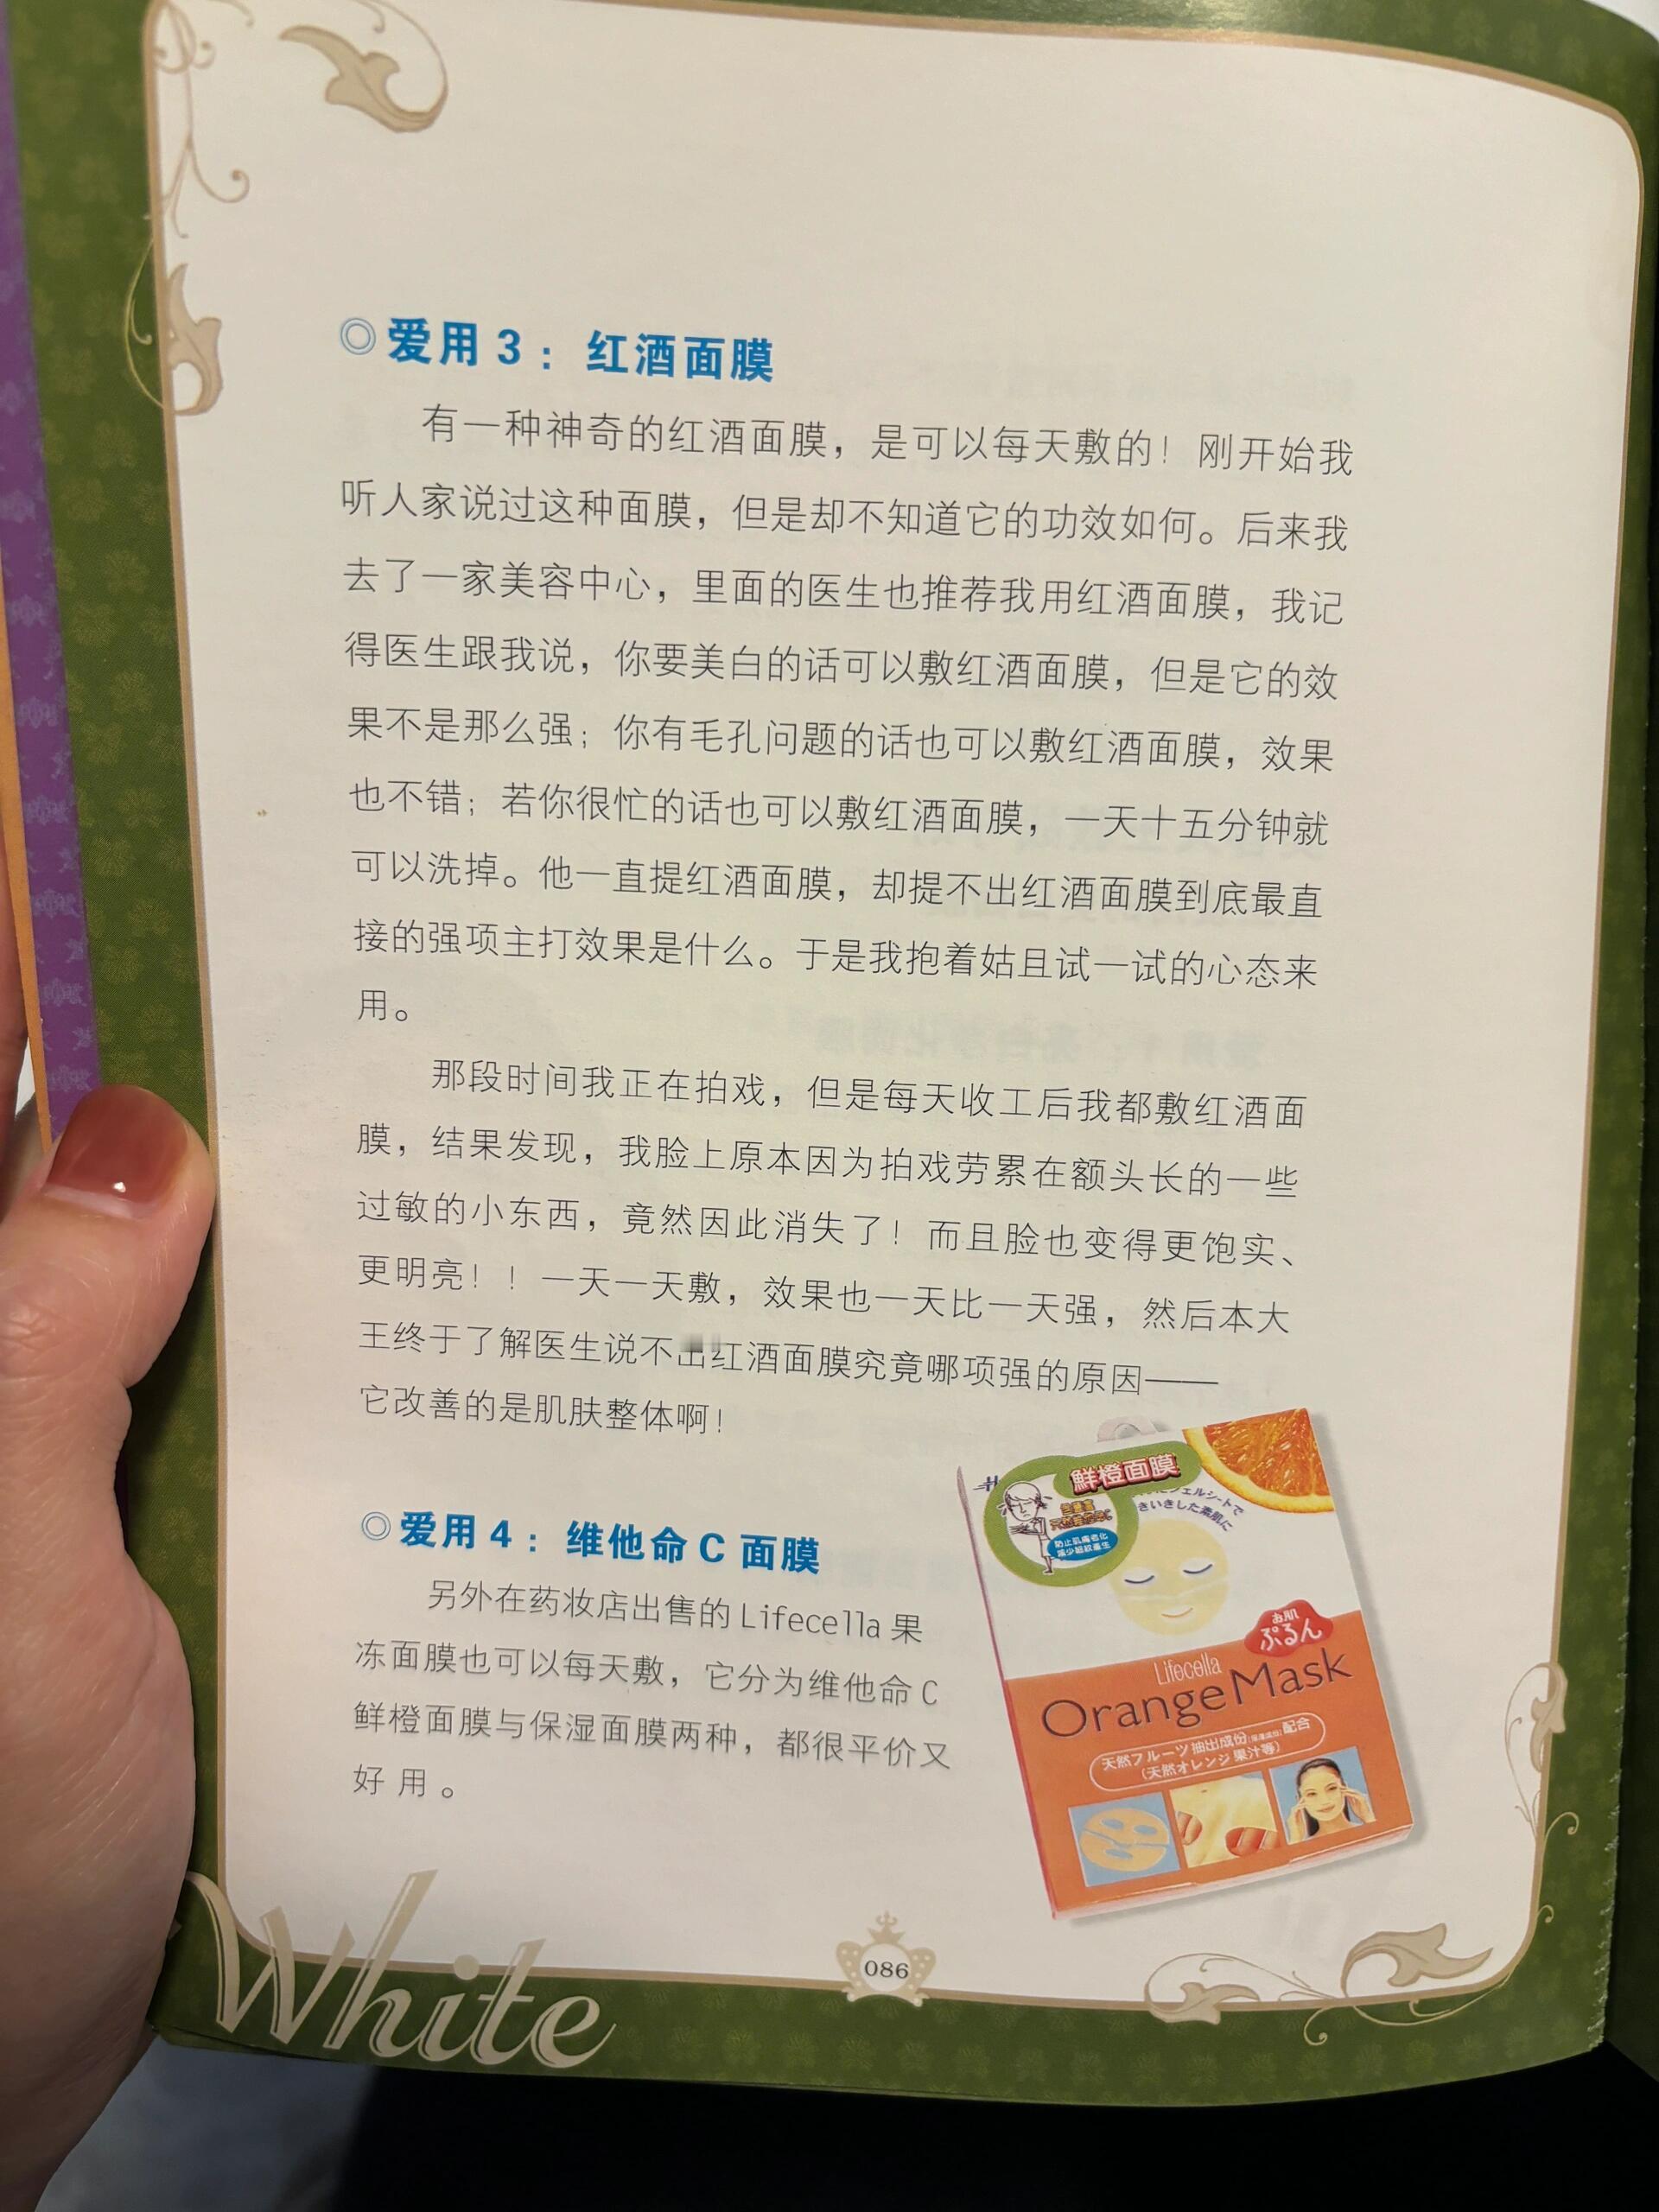 ◎爱用3：红酒面膜
有一种神奇的红酒面膜，是可以每天敷的！刚开始我
听人家说过这种面膜，但是却不知道它的功效如何。后来我
去了一家美容中心，里面的医生也推荐我用红酒面膜，我记
得医生跟我说，你要美白的话可以敷红酒面膜，但是它的效
果不是那么强；你有毛孔问题的话也可以敷红酒面膜，效果
也不错；若你很忙的话也可以敷红酒面膜，一天十五分钟就
可以洗掉。他一直提红酒面膜，却提不出红酒面膜到底最直
接的强项主打效果是什么。于是我抱着姑且试一试的心态来
用。
那段时间我正在拍戏，但是每天收工后我都敷红酒面
膜，结果发现，我脸上原本因为拍戏劳累在额头长的一些
过敏的小东西，竟然因此消失了！而且脸也变得更饱实、
更明亮！！一天一天敷，效果也一天比一天强，然后本大
王终于了解医生说不出红酒面膜究竟哪项强的原因——
它改善的是肌肤整体啊！
◎爱用4：维他命C面膜
另外在药妆店出售的Lifecella果
冻面膜也可以每天敷，它分为维他命C
鲜橙面膜与保湿面膜两种，都很平价又
好用。
鮮橙面膜
ジェルシートで
いきいきした素肌に
防止肌膚老化
減少細紋產生
お肌
ぷるん
Lifecella
Orange Mask
天然フルーツ抽出成份配合
(天然オレンジ果汁等)
White
086